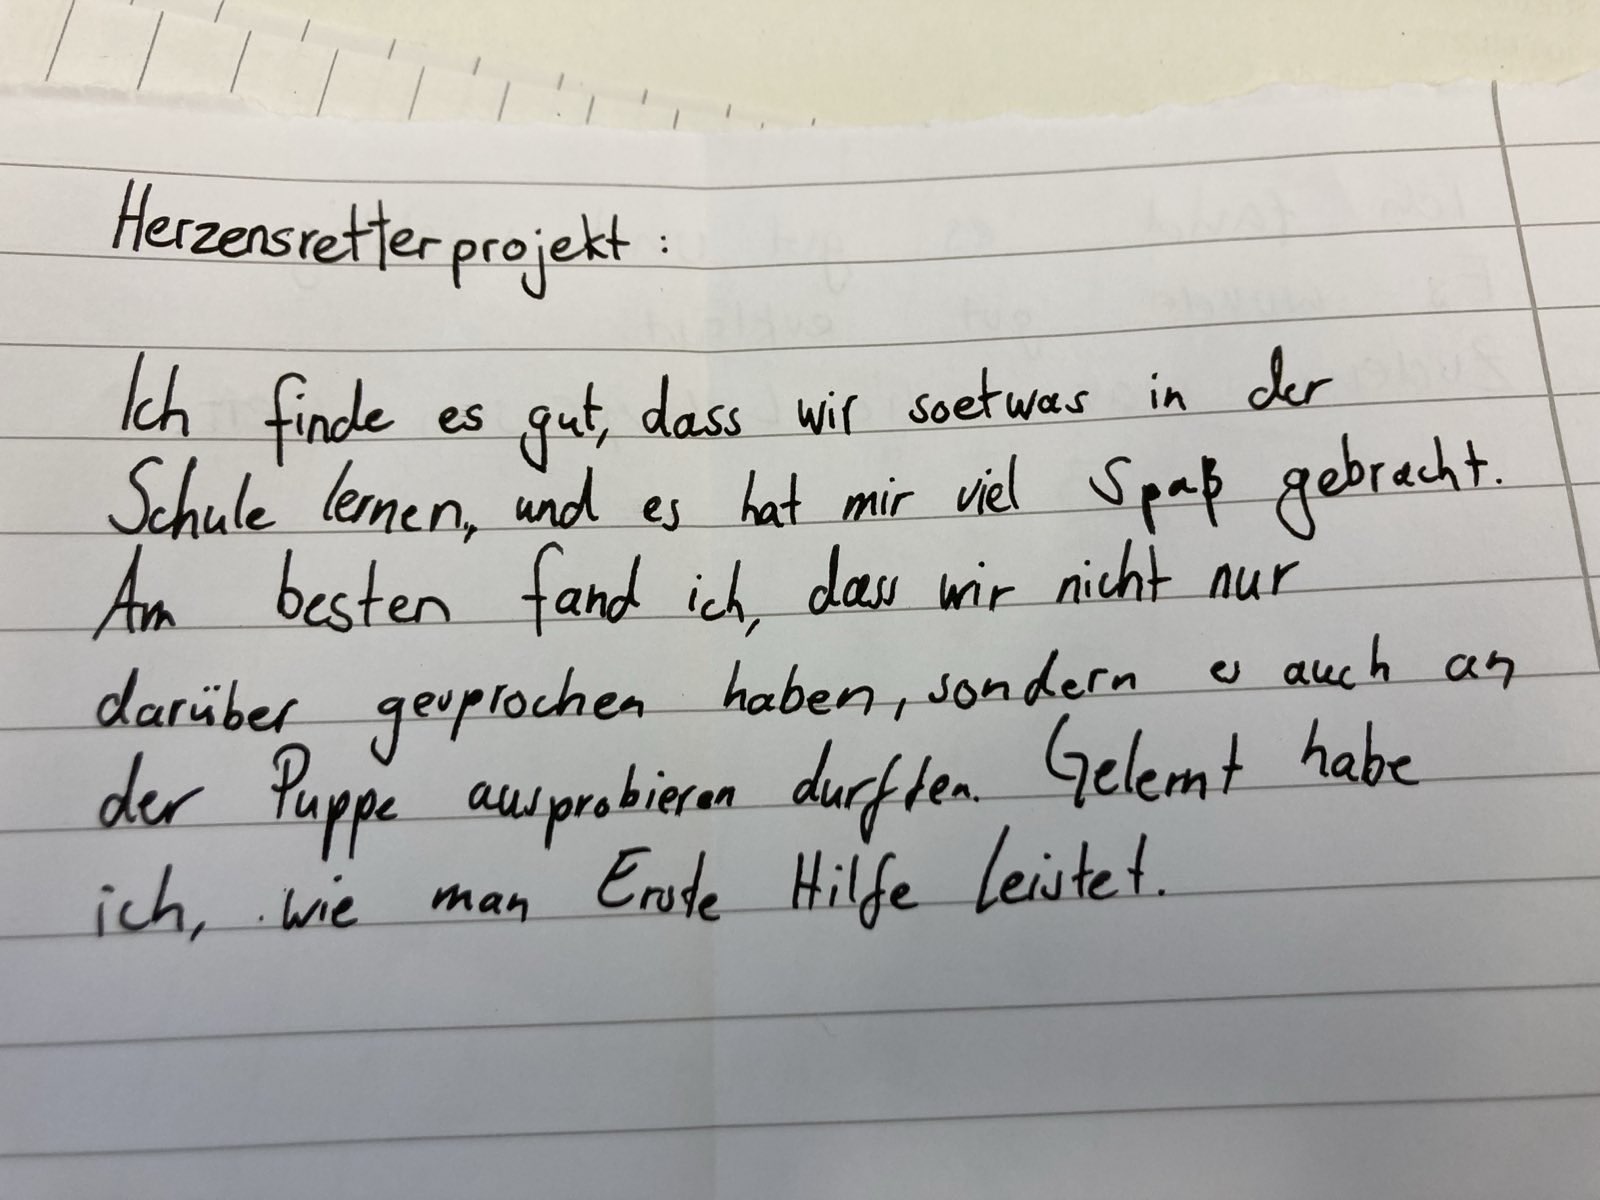 Herzensretterprojekt:
Ich finde es gut, dass wir soetwas in der
Schule lernen, und es hat mir viel Spaß gebracht.
Am besten fand ich, dass wir nicht nur
darüber gesprochen haben, sondern es auch an
der Puppe ausprobieren durften. Gelernt habe
ich, wie man Erste Hilfe leistet.